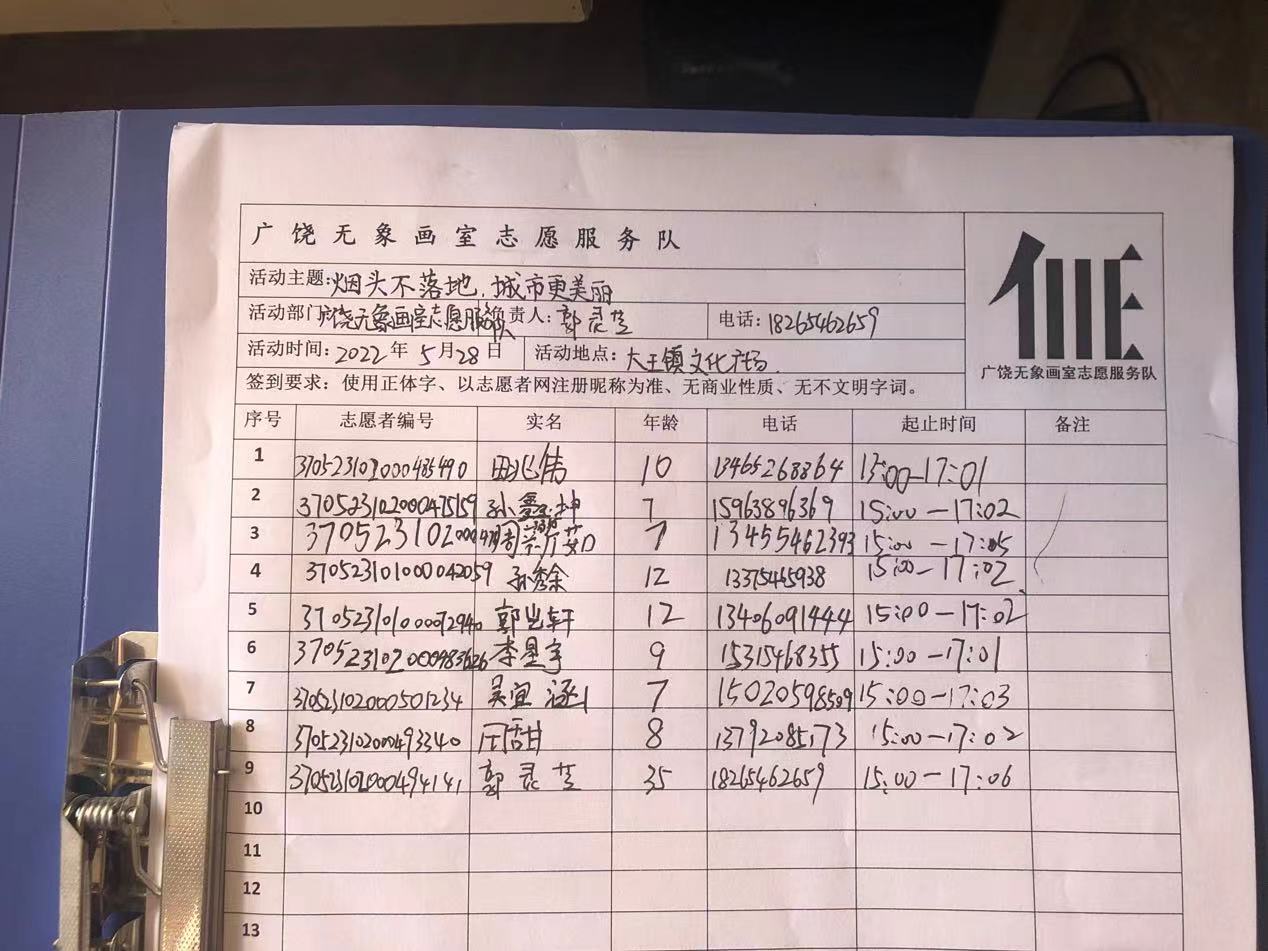 广饶无象画室志愿服务队
活动主题:烟头不落地,城市更美丽
活动部门:广饶无象画室志愿服务队 负责人:郭灵芝 电话:18265462659
活动时间:2022年5月28日 活动地点:大王镇文化广场.
广饶无象画室志愿服务队
签到要求:使用正体字、以志愿者网注册昵称为准、无商业性质、无不文明字词。
序号 志愿者编号 实名 年龄 电话 起止时间 备注
1 370523102000485490 田兆伟 10 13465268864 15:00-17:01
2 370523102000475159 孙鑫坤 7 15963896369 15:00-17:02
3 7 13455462393 15:00-17:05
4 370523101000042059 12 13375465938 15:00-17:02
5 370523101000072940 12 13406091444 15:00-17:02
6 370523102000983626 李星宇 9 15315468355 15:00-17:01
7 370523102000501234 吴宜涵 7 15020598509 15:00-17:03
8 370523102000493340 8 13792085173 15:00-17:02
9 370523102000494141 郭灵芝 35 18265462659 15:00-17:06
10
11
12
13